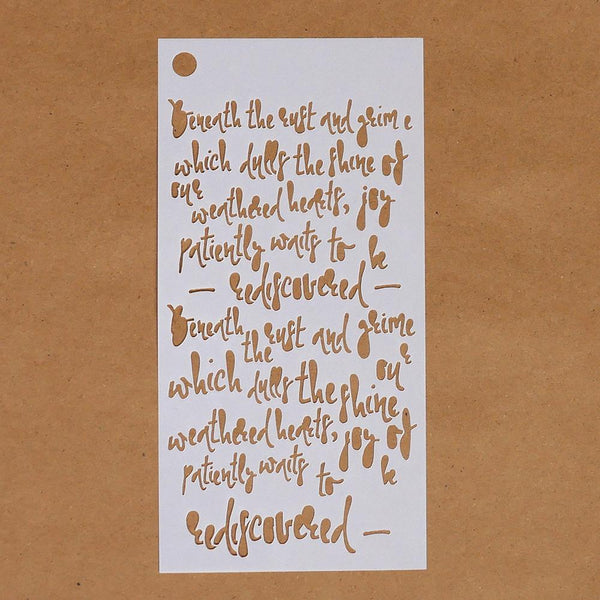 Beneath the rust and grime
which dulls the shine of
our weathered hearts, joy
patiently waits to be
— rediscovered —
Beneath the rust and grime
which dulls the shine our
weathered hearts, joy of
patiently waits to be
rediscovered —